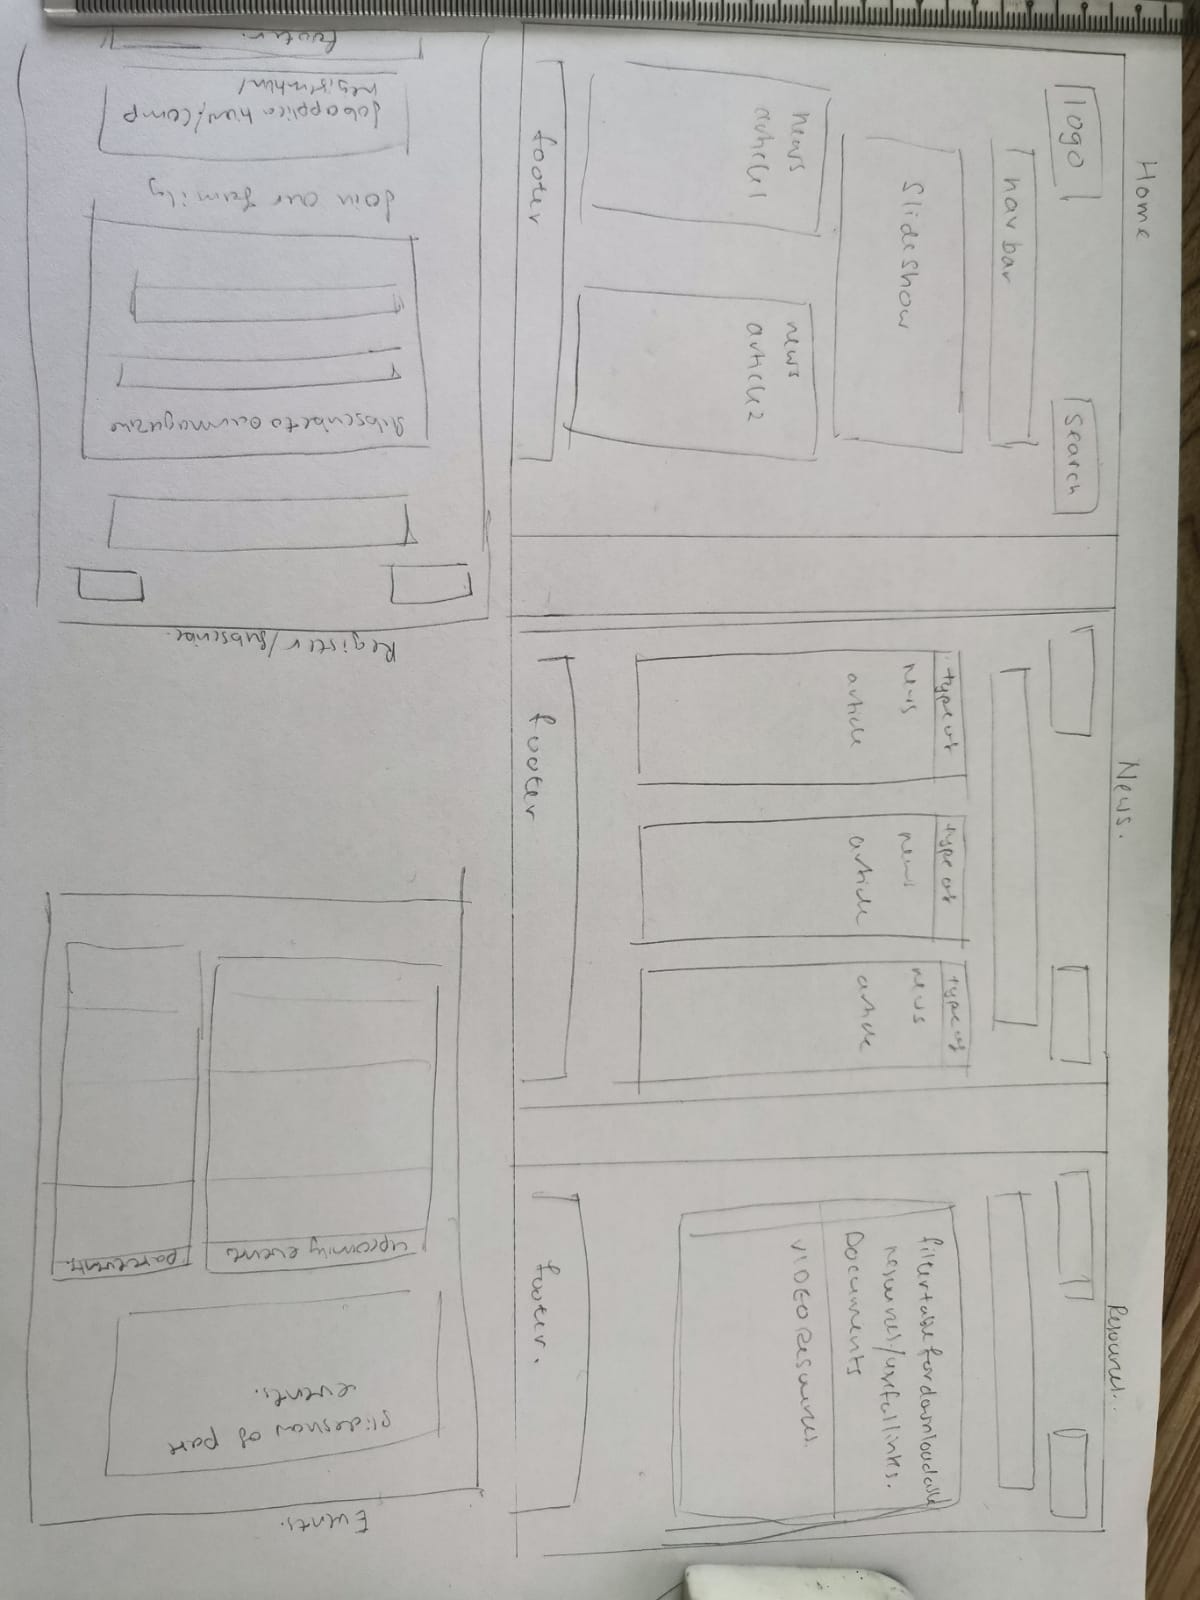 Home
logo
Search
navbar
Slideshow
news
article 1
news
article 2
footer
News.
type of
news
article
type of
news
article
type of
news
article
footer
Resources...
filter table for downloadable
resources/useful links.
Documents
VIDEO Resources.
footer.
Register/Subscribe.
Subscribe to our magazine
Join our family
Job application/comp
footer.
Events.
Slideshow of past
events.
upcoming events
past events.